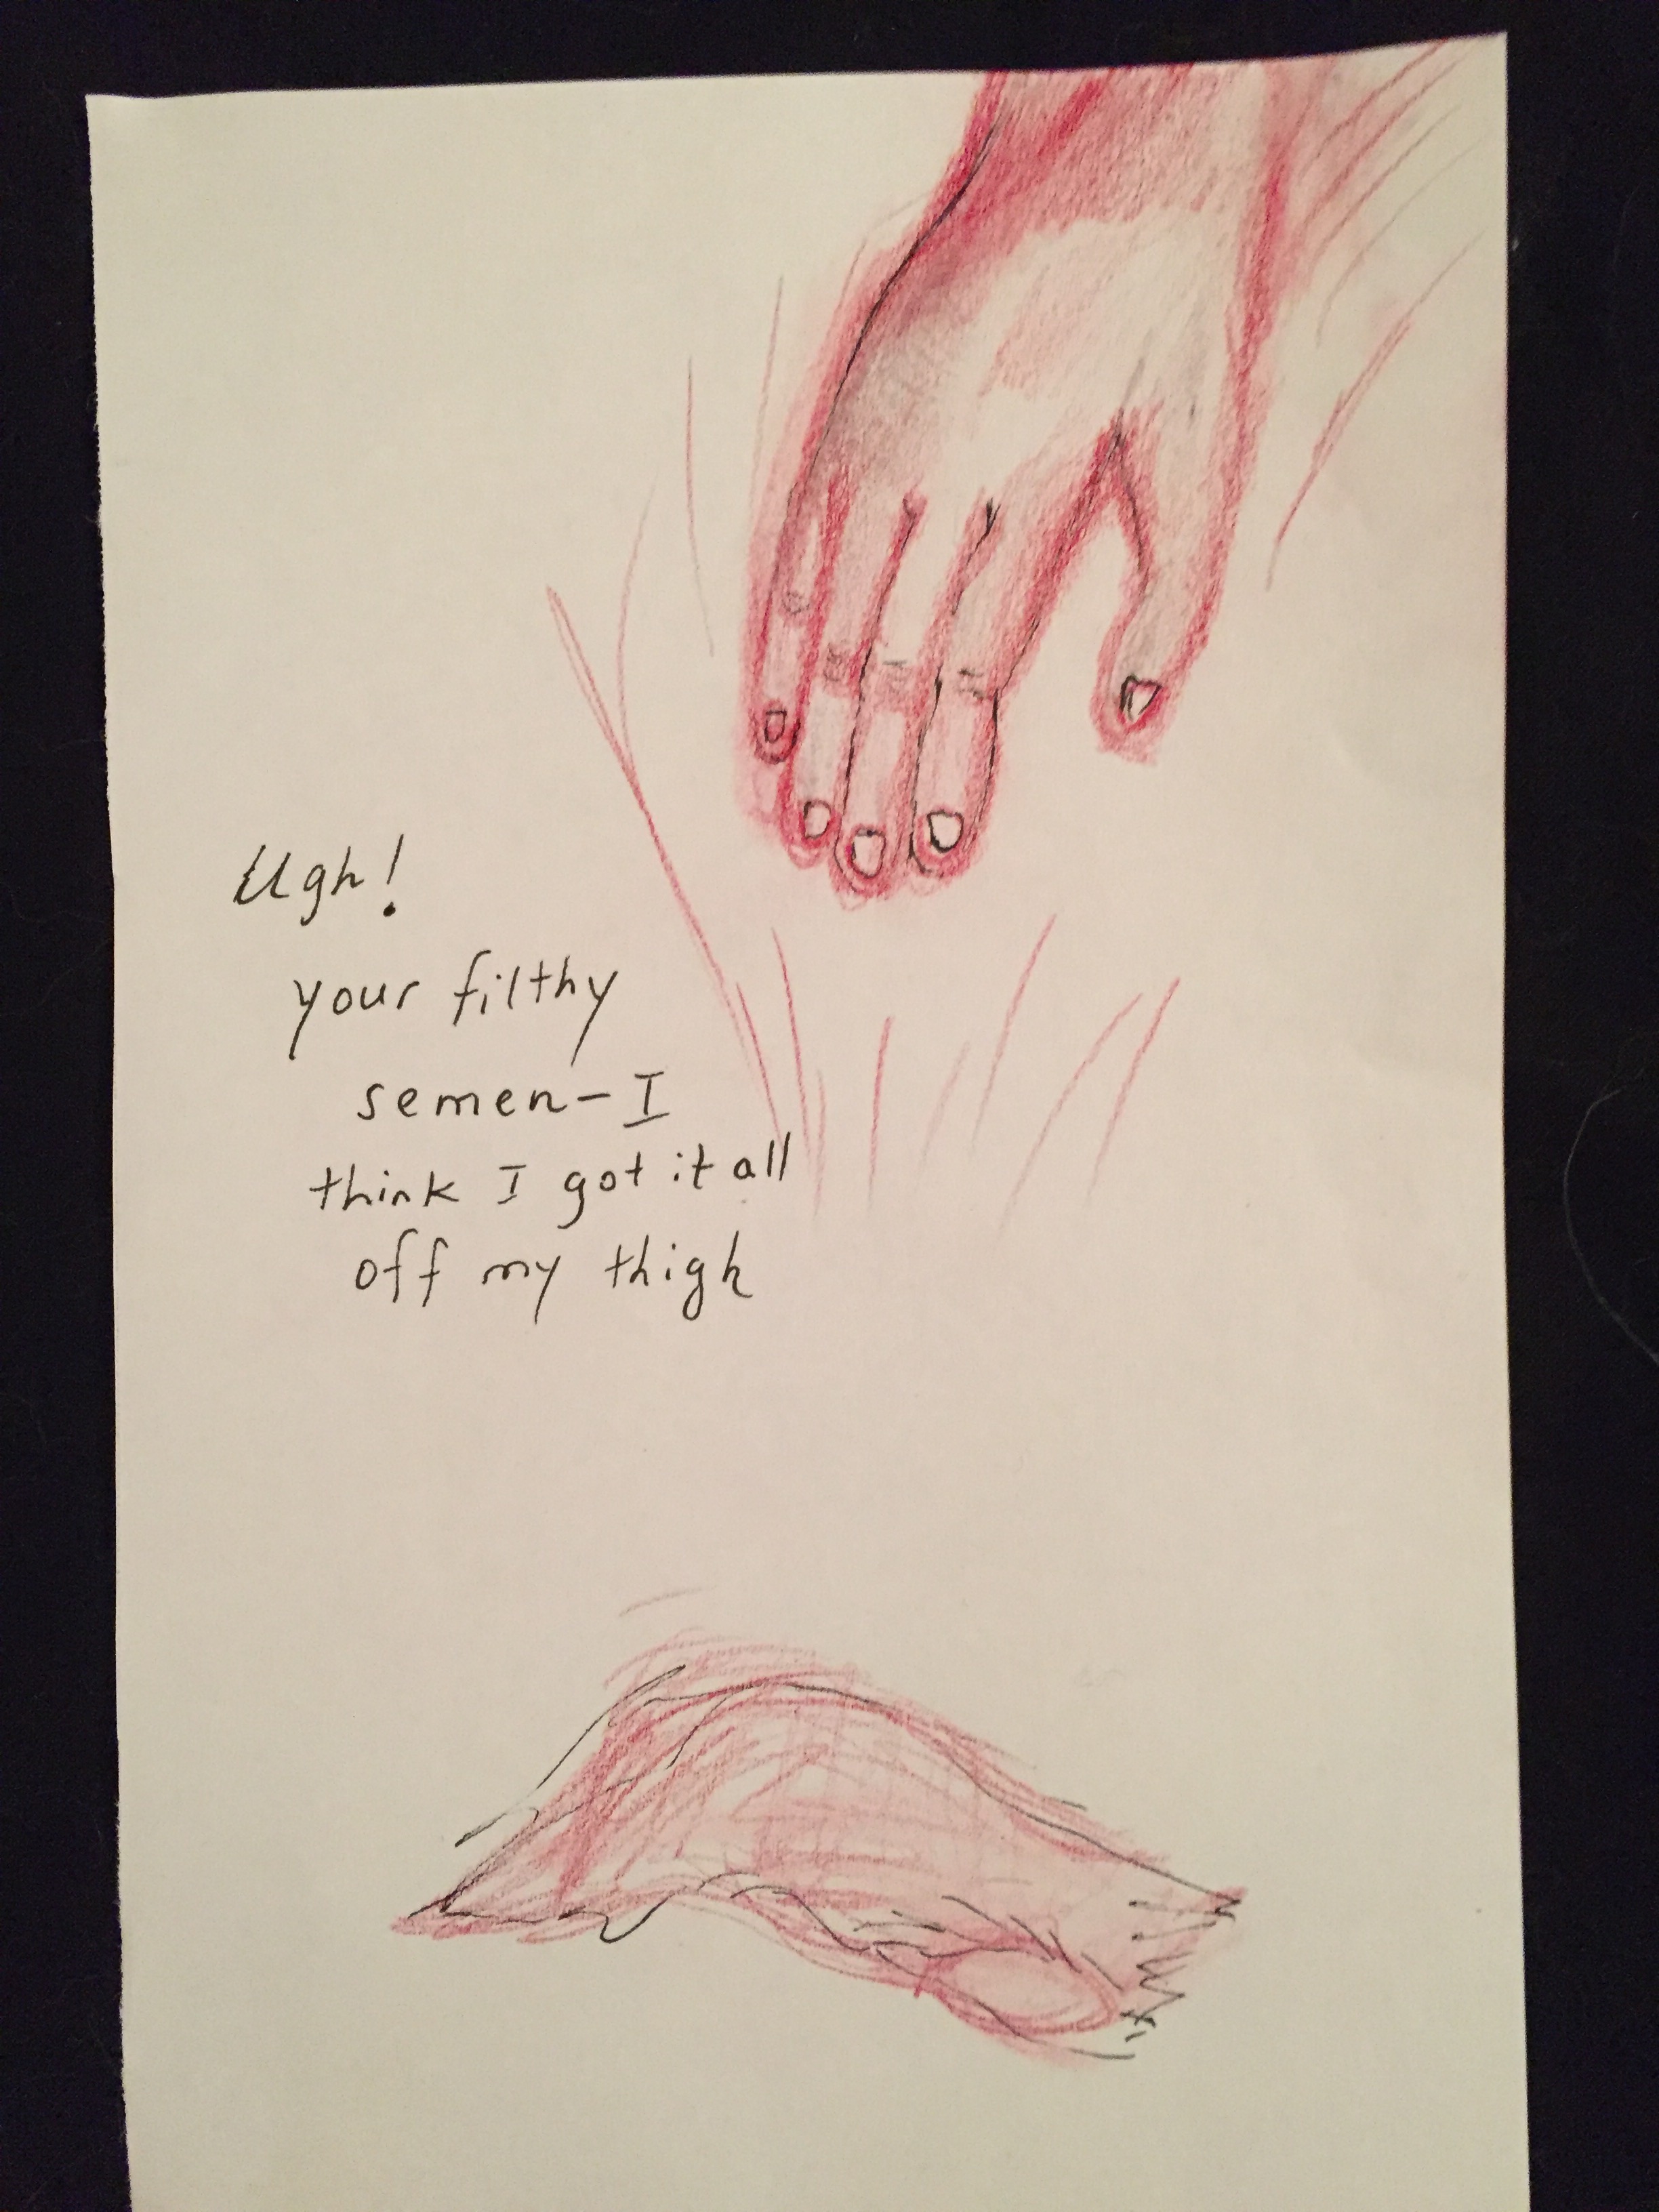 Ugh!
your filthy
semen-I
think I got it all
off my thigh